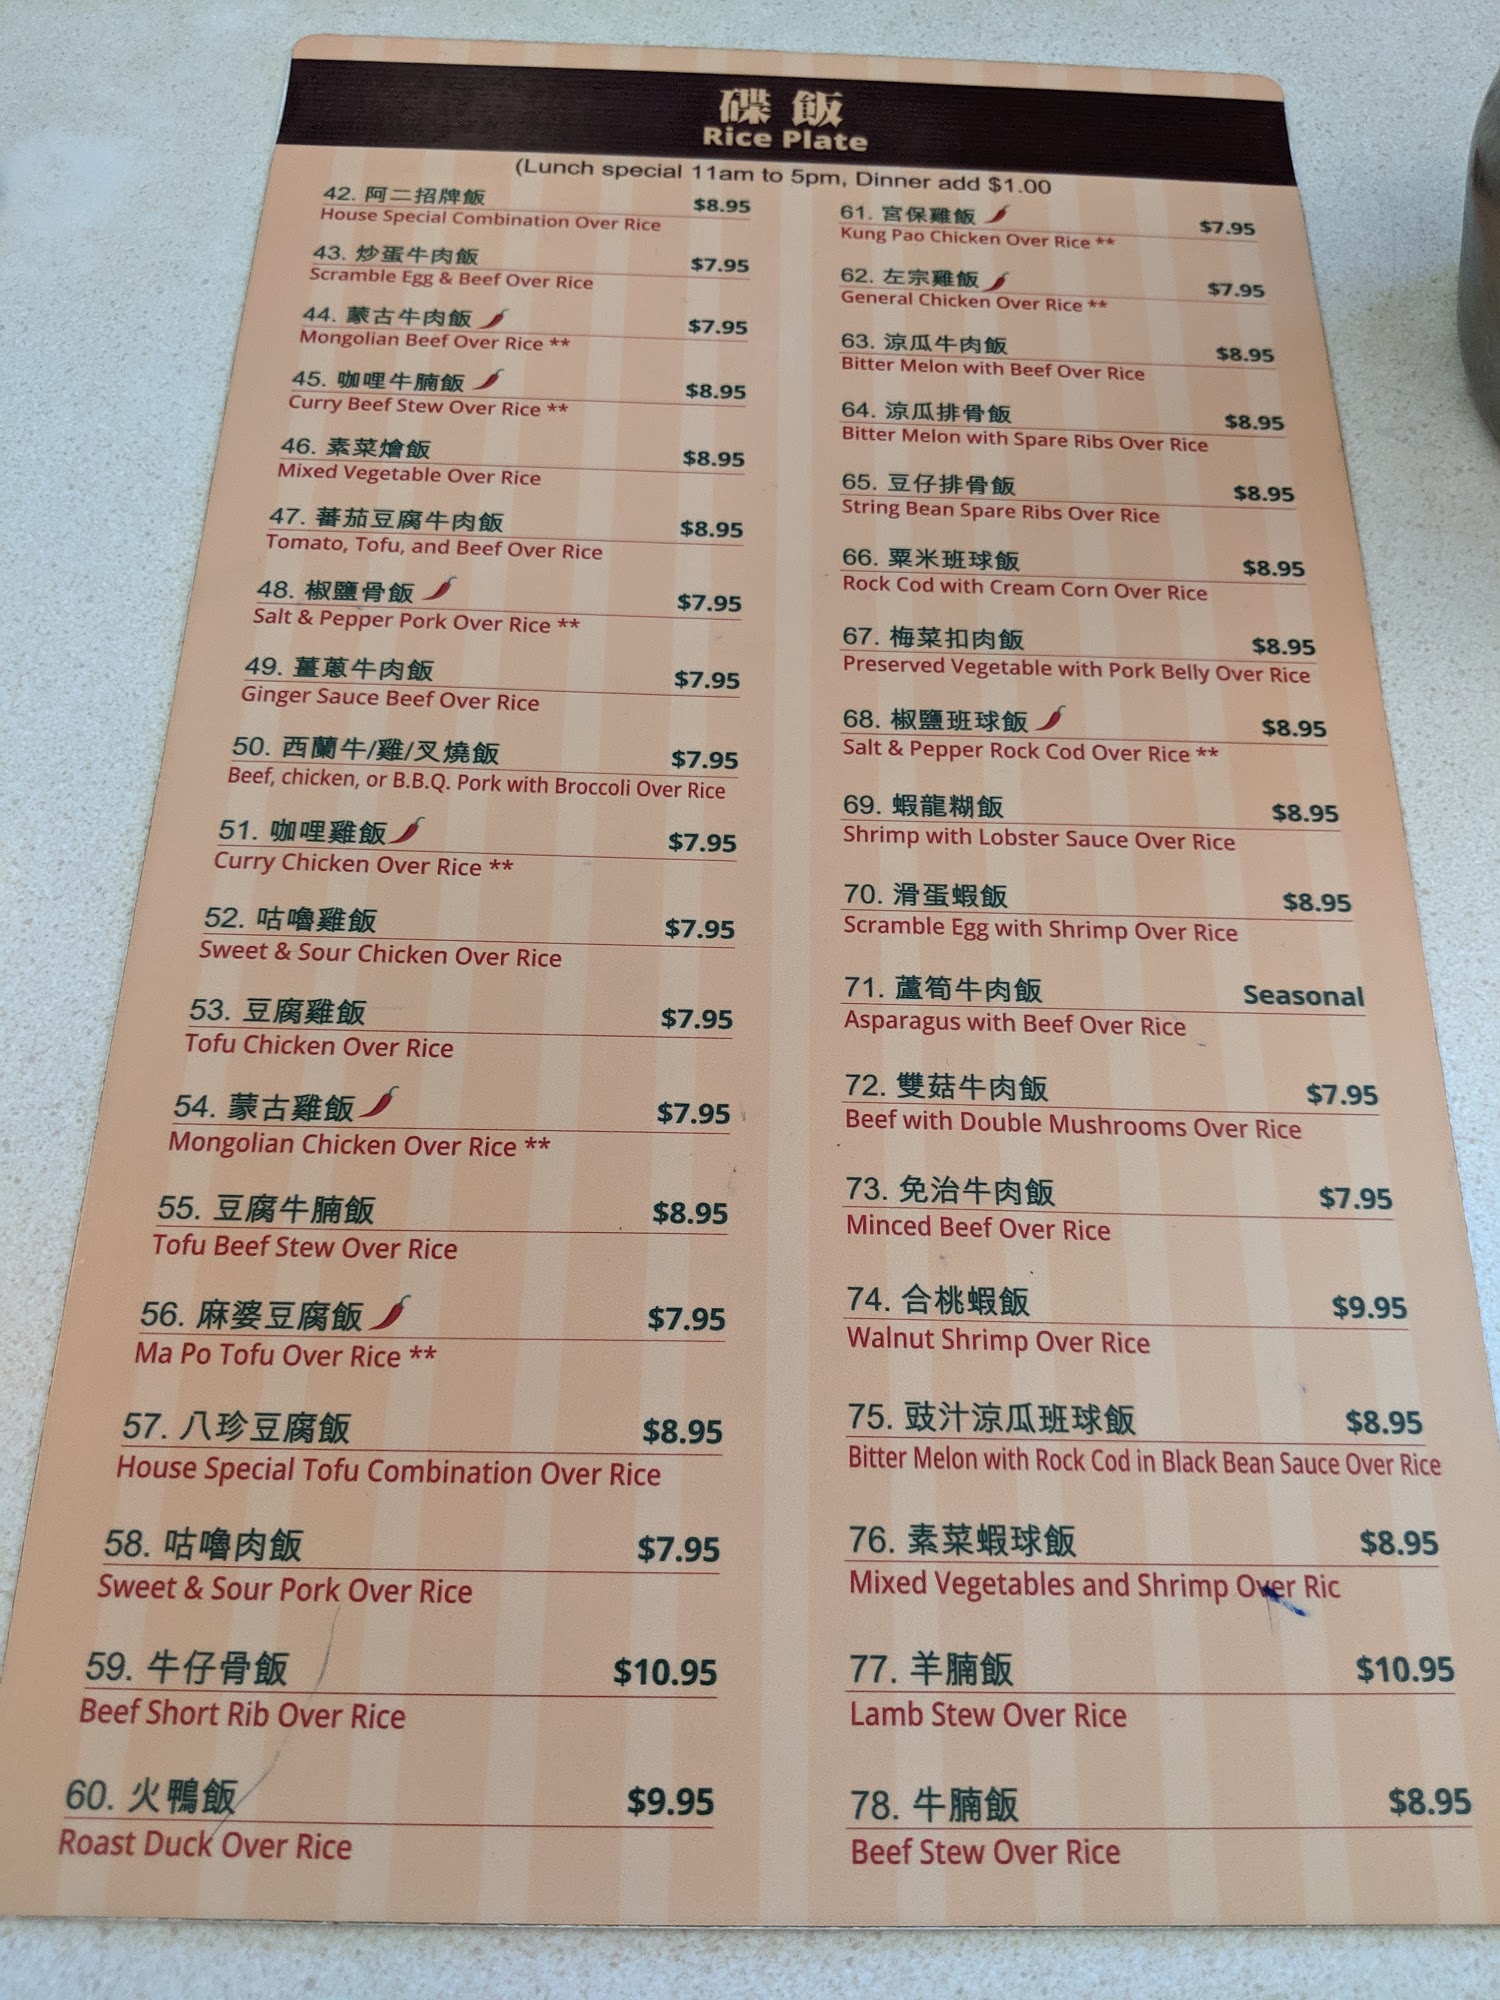 碟飯
Rice Plate
(Lunch special 11am to 5pm, Dinner add $1.00
42. 阿二招牌飯 $8.95
House Special Combination Over Rice
43. 炒蛋牛肉飯 $7.95
Scramble Egg & Beef Over Rice
44. 蒙古牛肉飯 $7.95
Mongolian Beef Over Rice **
45. 咖哩牛腩飯 $8.95
Curry Beef Stew Over Rice **
46. 素菜燴飯 $8.95
Mixed Vegetable Over Rice
47. 蕃茄豆腐牛肉飯 $8.95
Tomato, Tofu, and Beef Over Rice
48. 椒鹽骨飯 $7.95
Salt & Pepper Pork Over Rice **
49. 薑蔥牛肉飯 $7.95
Ginger Sauce Beef Over Rice
50. 西蘭牛/雞/叉燒飯 $7.95
Beef, chicken, or B.B.Q. Pork with Broccoli Over Rice
51. 咖哩雞飯 $7.95
Curry Chicken Over Rice **
52. 咕嚕雞飯 $7.95
Sweet & Sour Chicken Over Rice
53. 豆腐雞飯 $7.95
Tofu Chicken Over Rice
54. 蒙古雞飯 $7.95
Mongolian Chicken Over Rice **
55. 豆腐牛腩飯 $8.95
Tofu Beef Stew Over Rice
56. 麻婆豆腐飯 $7.95
Ma Po Tofu Over Rice **
57. 八珍豆腐飯 $8.95
House Special Tofu Combination Over Rice
58. 咕嚕肉飯 $7.95
Sweet & Sour Pork Over Rice
59. 牛仔骨飯 $10.95
Beef Short Rib Over Rice
60. 火鴨飯 $9.95
Roast Duck Over Rice
61. 宮保雞飯 $7.95
Kung Pao Chicken Over Rice **
62. 左宗雞飯 $7.95
General Chicken Over Rice **
63. 涼瓜牛肉飯 $8.95
Bitter Melon with Beef Over Rice
64. 涼瓜排骨飯 $8.95
Bitter Melon with Spare Ribs Over Rice
65. 豆仔排骨飯 $8.95
String Bean Spare Ribs Over Rice
66. 粟米班球飯 $8.95
Rock Cod with Cream Corn Over Rice
67. 梅菜扣肉飯 $8.95
Preserved Vegetable with Pork Belly Over Rice
68. 椒鹽班球飯 $8.95
Salt & Pepper Rock Cod Over Rice **
69. 蝦龍糊飯 $8.95
Shrimp with Lobster Sauce Over Rice
70. 滑蛋蝦飯 $8.95
Scramble Egg with Shrimp Over Rice
71. 蘆筍牛肉飯 Seasonal
Asparagus with Beef Over Rice
72. 雙菇牛肉飯 $7.95
Beef with Double Mushrooms Over Rice
73. 免治牛肉飯 $7.95
Minced Beef Over Rice
74. 合桃蝦飯 $9.95
Walnut Shrimp Over Rice
75. 豉汁涼瓜班球飯 $8.95
Bitter Melon with Rock Cod in Black Bean Sauce Over Rice
76. 素菜蝦球飯 $8.95
Mixed Vegetables and Shrimp Over Ric
77. 羊腩飯 $10.95
Lamb Stew Over Rice
78. 牛腩飯 $8.95
Beef Stew Over Rice